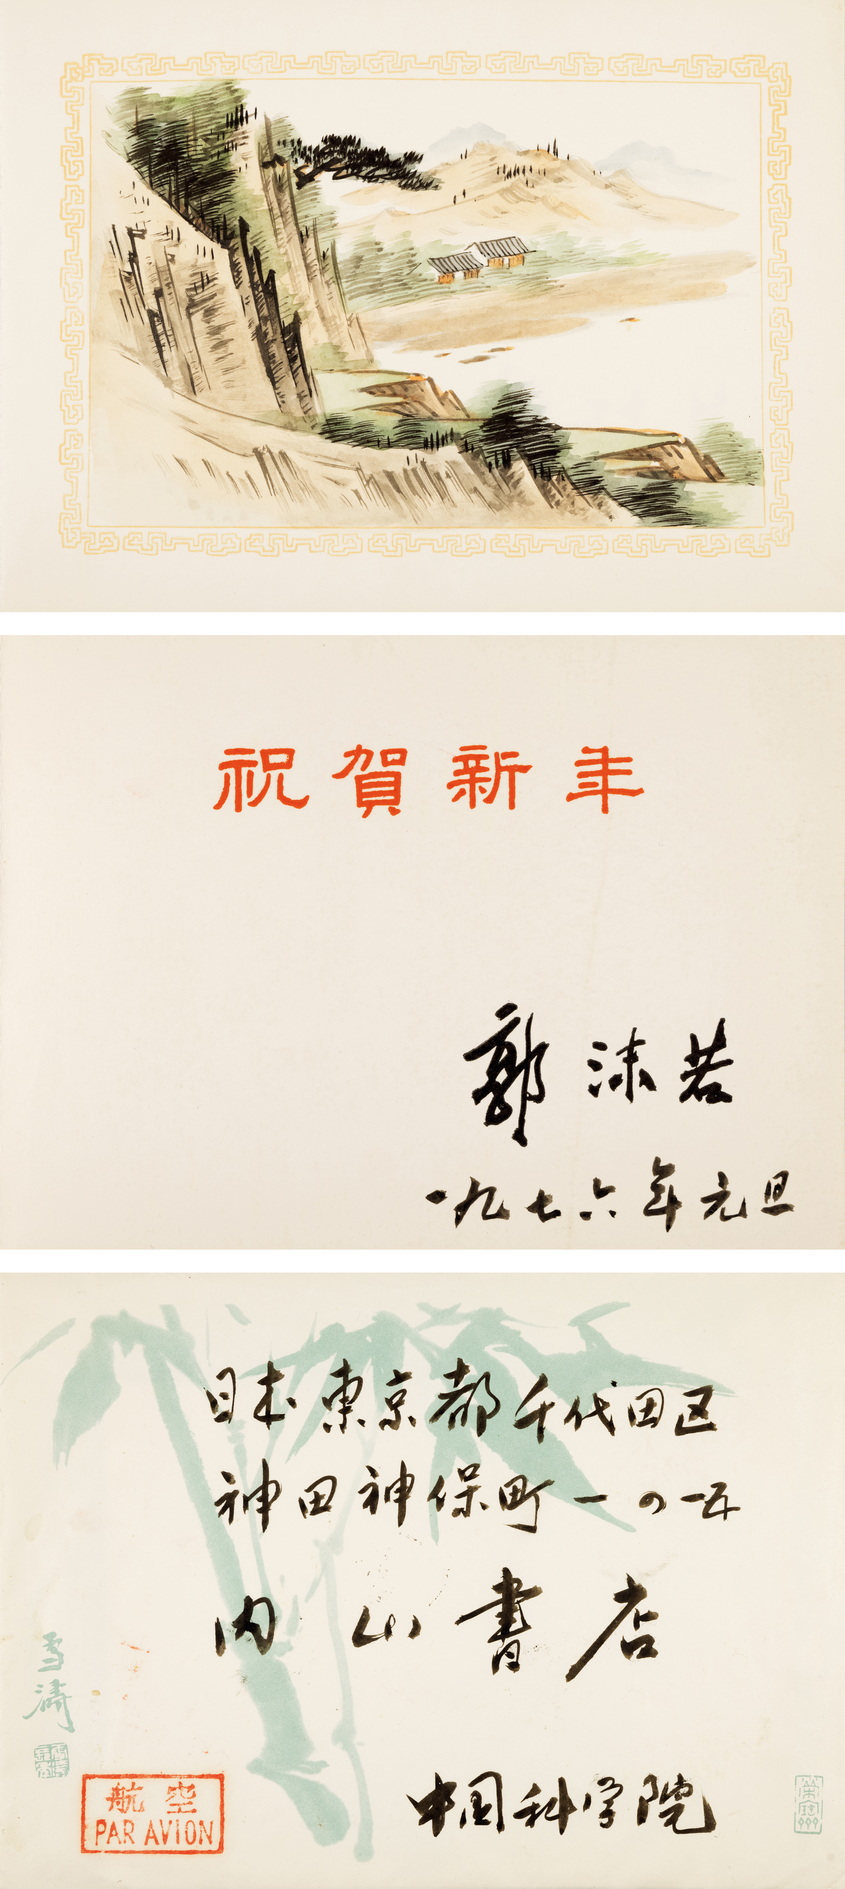 祝賀新年
郭沫若
一九七六年元旦
日本東京都千代田区
神田神保町一の一五
内山書店
雪濤
航空
PAR AVION
中国科学院